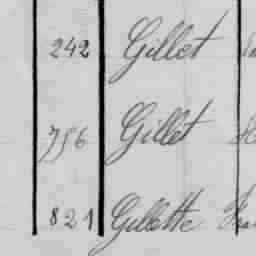 242 Gillet
756 Gillet
821 Gillette